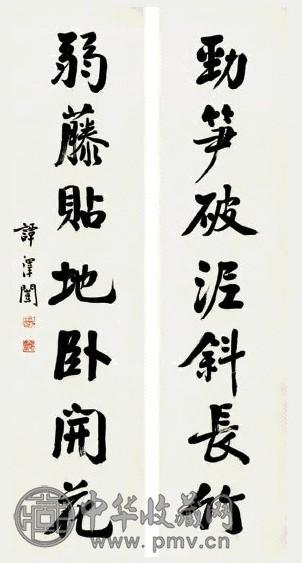 勁筍破泥斜長竹
弱藤貼地卧開花
譚澤闓
中华收藏网
www.pmv.cn